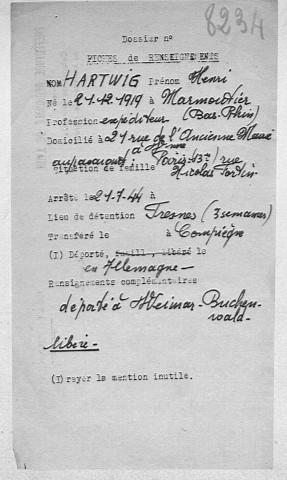 8234
Dossier n°
FICHES de RENSEIGNEMENTS
NOM HARTWIG Prénom Henri
Né le 21.12.1919 à Marmoutier
(Bas-Rhin)
Profession expéditeur
Domicilié à 21 rue de l'Ancienne
à
auparavant : Paris (13e) rue
Situation de famille Nicolas Fortin
Arrêté le 21-7-44 à
Lieu de détention Fresnes (3 semaines)
Transféré le à Compiègne
(I) Déporté, fusillé, libéré le
en Allemagne -
Renseignements complémentaires
déporté à Weimar-Buchen-
wald-
libéré -
(I) rayer la mention inutile.